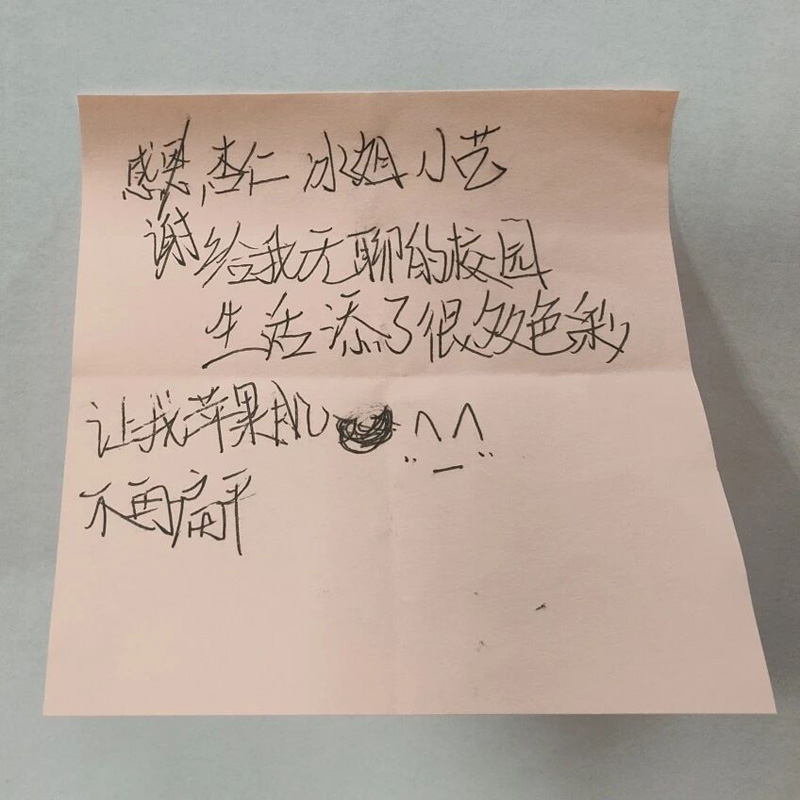 感恩 杏仁 冰姐 小艺
谢给我无聊的校园
生活添了很多色彩
让我苹果肌 ^_^
不再扁平